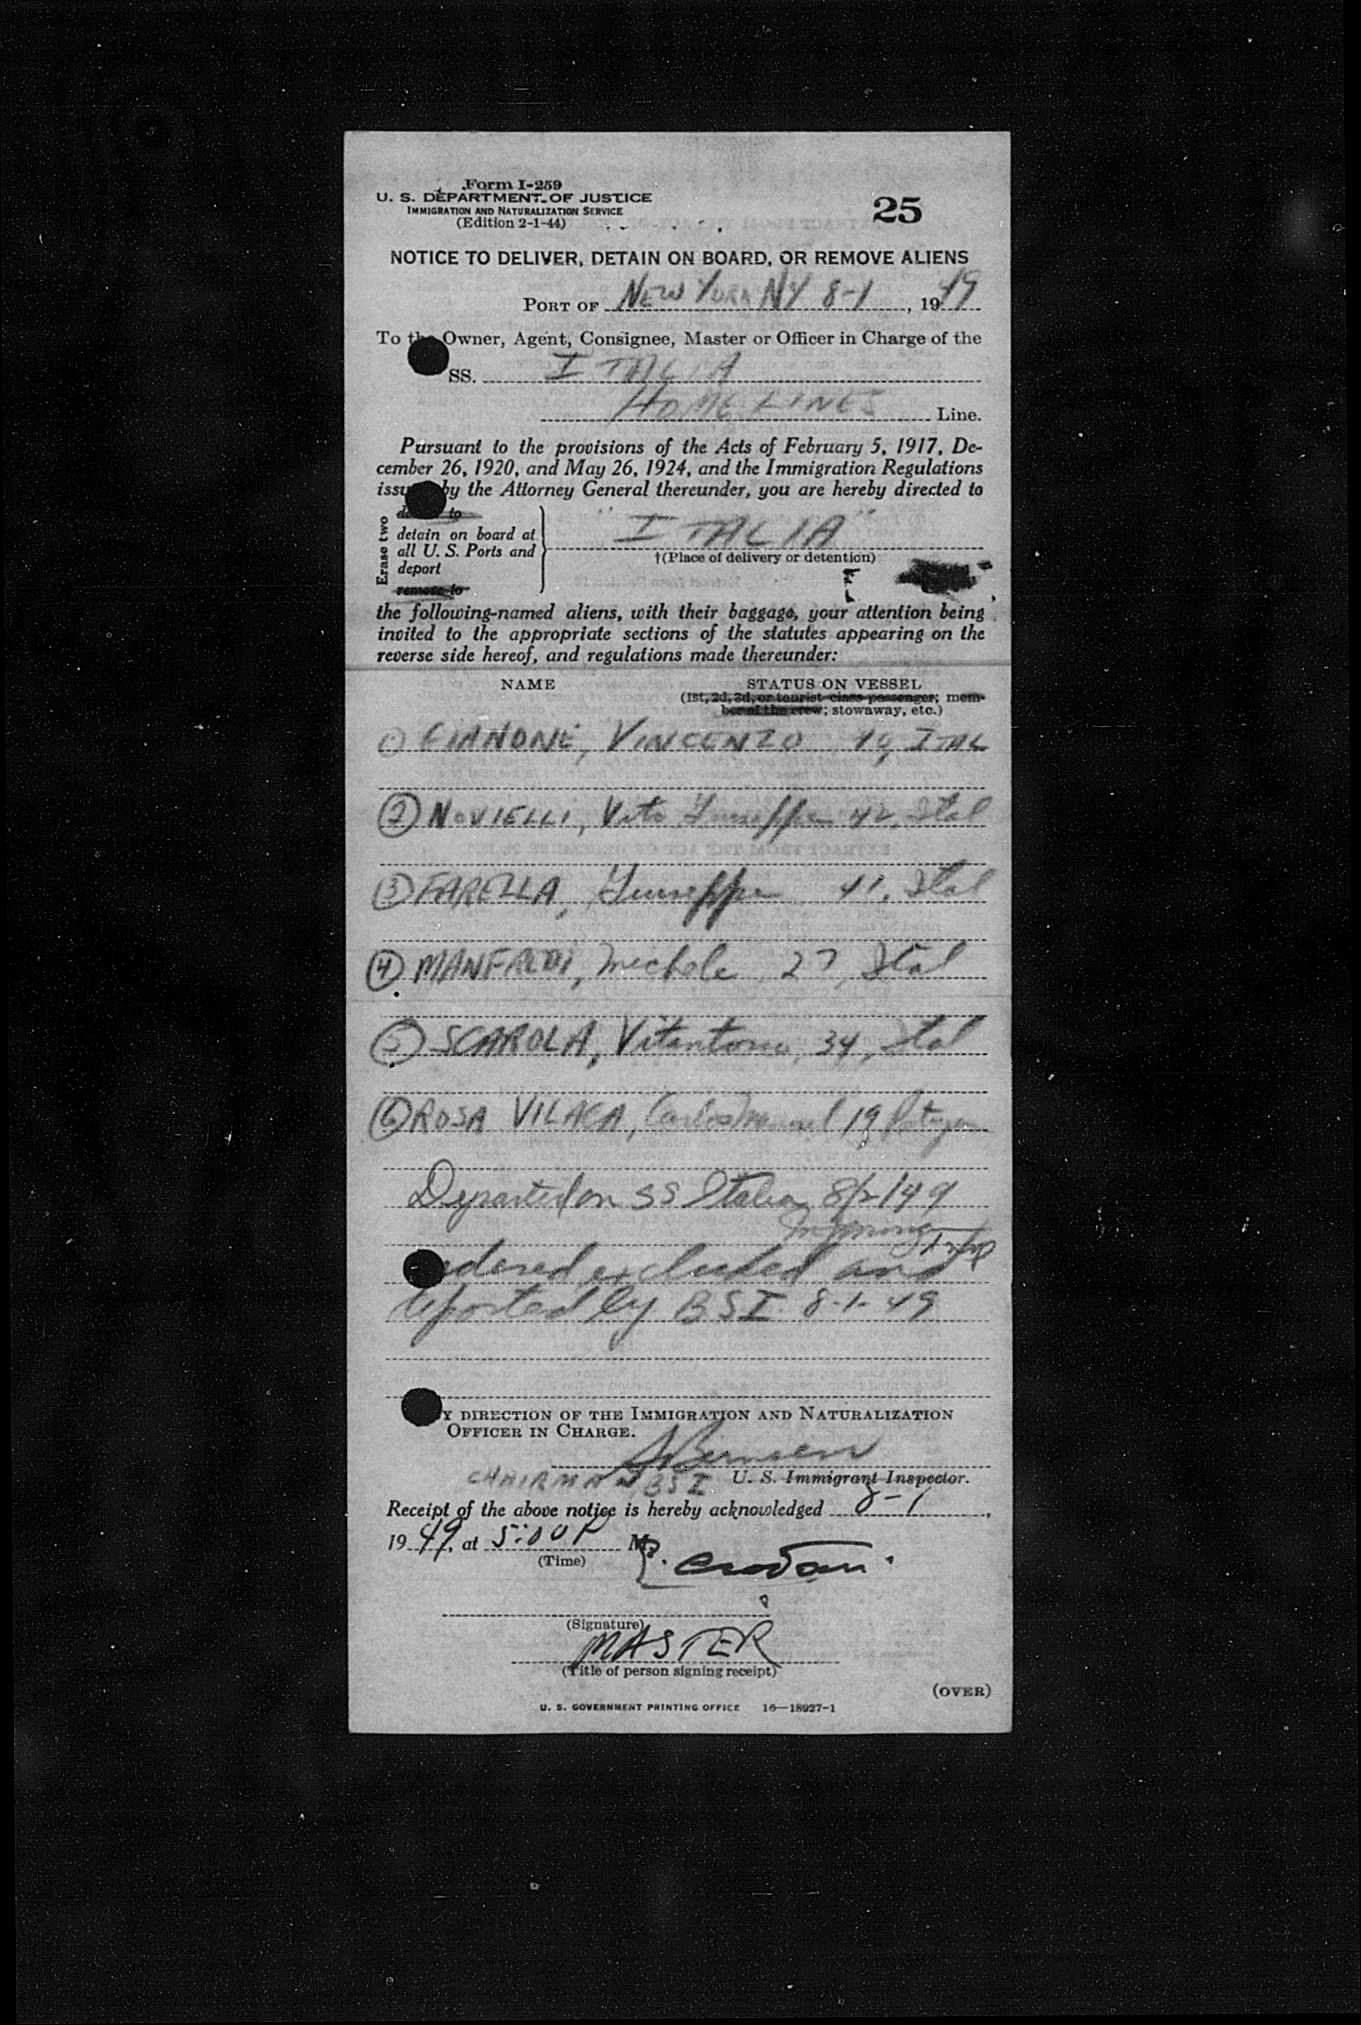 Form I-259
U. S. DEPARTMENT OF JUSTICE
IMMIGRATION AND NATURALIZATION SERVICE
(Edition 2-1-44)
25
NOTICE TO DELIVER, DETAIN ON BOARD, OR REMOVE ALIENS
PORT OF NEW YORK NY 8-1, 1949
To the Owner, Agent, Consignee, Master or Officer in Charge of the
SS. ITALIA
HOME LINES Line.
Pursuant to the provisions of the Acts of February 5, 1917, De-
cember 26, 1920, and May 26, 1924, and the Immigration Regulations
issued by the Attorney General thereunder, you are hereby directed to
Erase two
detain on board at
all U. S. Ports and
deport
remove to
"ITALIA"
†(Place of delivery or detention)
the following-named aliens, with their baggage, your attention being
invited to the appropriate sections of the statutes appearing on the
reverse side hereof, and regulations made thereunder:
NAME STATUS ON VESSEL
(1st, 2d, 3d, or tourist class passenger; mem-
ber of the crew; stowaway, etc.)
① FIANONE, VINCENZO 19, ITAL
② NOVIELLI, Vito Giuseppe 42, Ital
③ FARELLA, Giuseppe 41, Ital
④ Michele 27, Ital
⑤ SCAROLA, Vitantonio, 34, Ital
⑥ ROSA VILACA, Carlos Manuel 19
Departed on SS Italia 8/2/49
ordered excluded and
deported by BSI 8-1-49
BY DIRECTION OF THE IMMIGRATION AND NATURALIZATION
OFFICER IN CHARGE.
CHAIRMAN BSI U. S. Immigrant Inspector.
Receipt of the above notice is hereby acknowledged 8-1,
1949, at 5:00 P M.
(Time)
(Signature)
MASTER
(Title of person signing receipt)
(OVER)
U. S. GOVERNMENT PRINTING OFFICE 16—18927-1